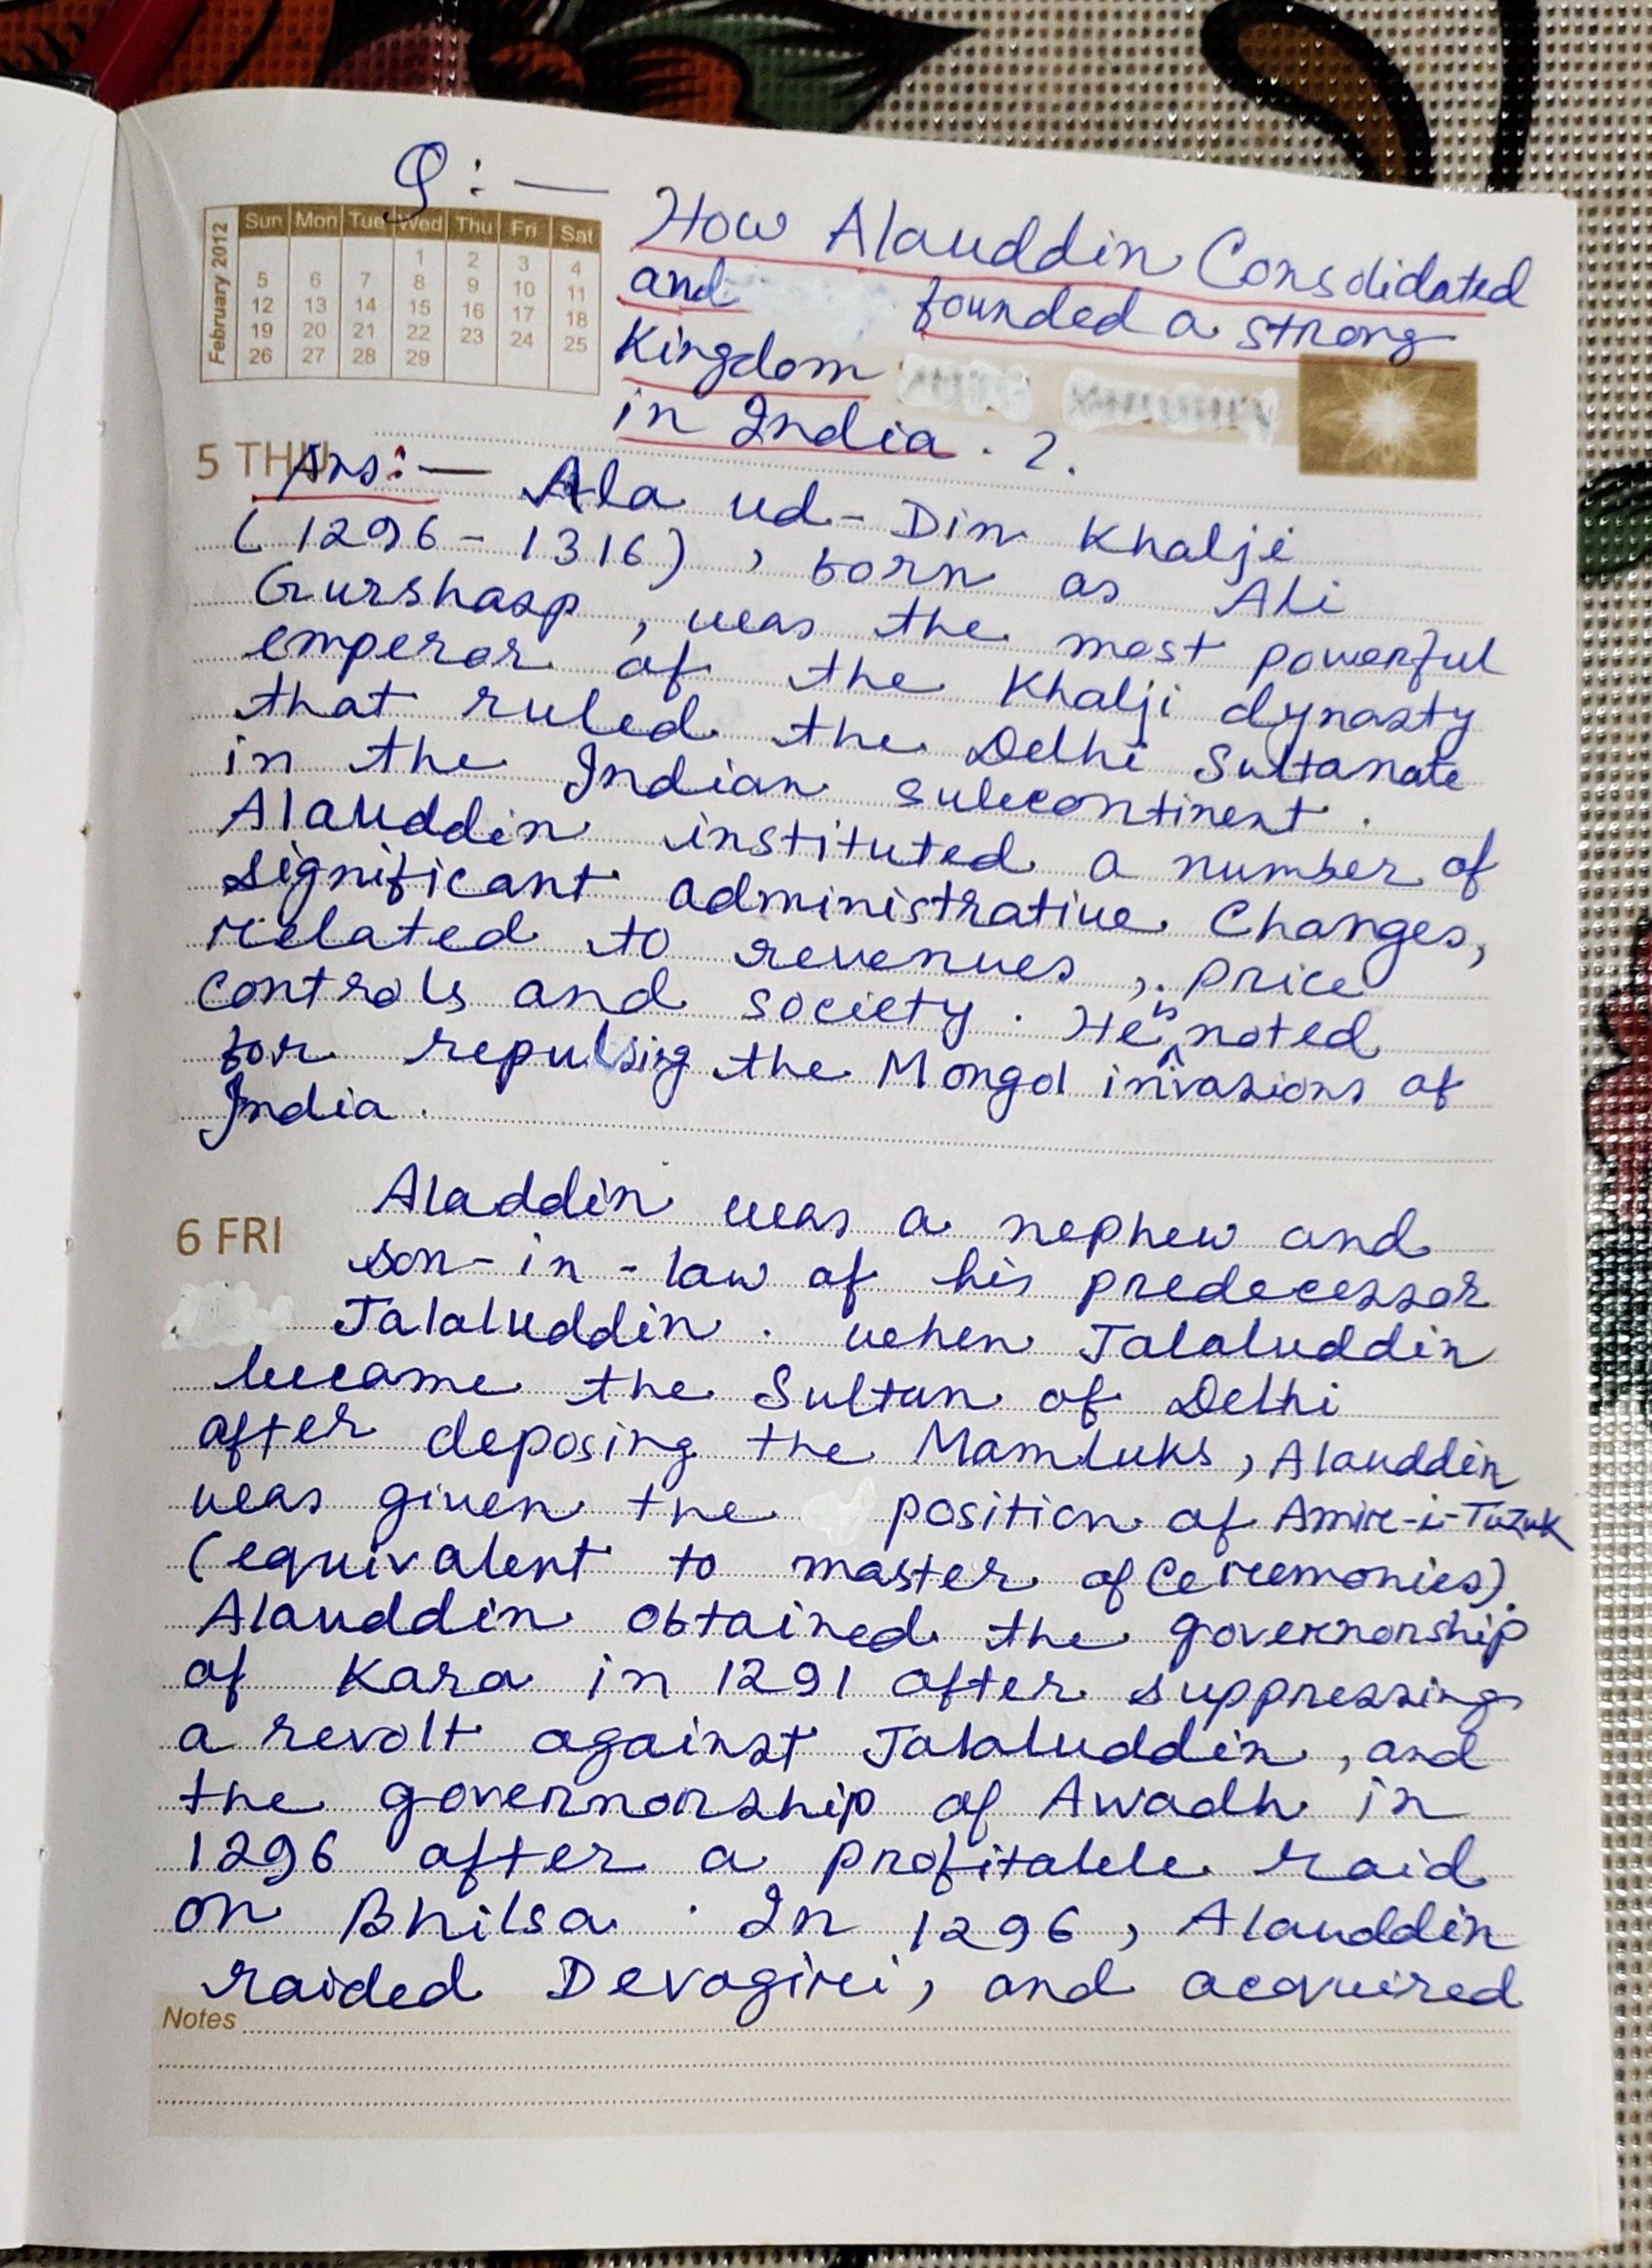 Q:—
How Alauddin Consolidated
and founded a strong
Kingdom
in India. ?.
February 2012
Sun Mon Tue Wed Thu Fri Sat
1 2 3 4
5 6 7 8 9 10 11
12 13 14 15 16 17 18
19 20 21 22 23 24 25
26 27 28 29
5 THU
Ans:— Ala ud-Din Khalji
(1296-1316), born as Ali
Gurshasp, was the most powerful
emperor of the Khalji dynasty
that ruled the Delhi Sultanate
in the Indian subcontinent.
Alauddin instituted a number of
significant administrative Changes,
related to revenues, price
controls and society. He is noted
for repulsing the Mongol invasions of
India.
6 FRI
Aladdin was a nephew and
son-in-law of his predecessor
Jalaluddin. when Jalaluddin
became the Sultan of Delhi
after deposing the Mamluks, Alauddin
was given the position of Amir-i-Tuzuk
(equivalent to master of Ceremonies).
Alauddin obtained the governorship
of Kara in 1291 after suppressing
a revolt against Jalaluddin, and
the governorship of Awadh in
1296 after a profitable raid
on Bhilsa. In 1296, Alauddin
raided Devagiri, and acquired
Notes